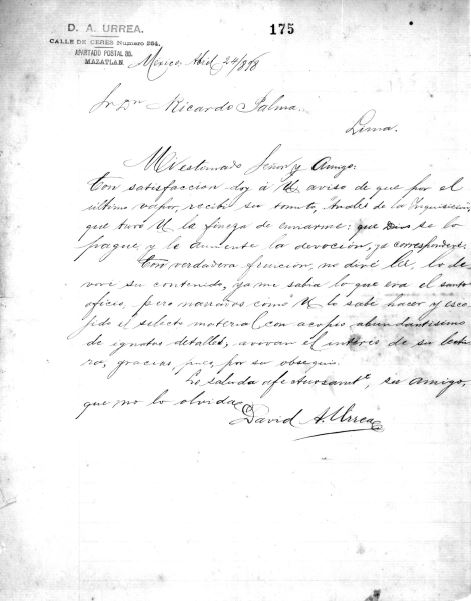 D. A. URREA.
CALLE DE CERES Numero 284.
APARTADO POSTAL 89.
MAZATLAN.
175
Mexico, Abril 24/898
Sr Dn Ricardo Palma.
Lima.
Mi estimado Señor y Amigo:
Con satisfaccion doy á U aviso de que por el
último vapor, recibí su tomito, Anales de la Inquisicion,
que tuvo U la fineza de enviarme: que Dios se lo
pague, y le aumente la devocion, yo corresponderé.
Con verdadera fruicion, no diré leí, lo de
voré su contenido, ya me sabía lo que era el santo
oficio, pero narrarlos como U lo sabe hacer y esco
jido el selecto material con acopio abundantisimo
de ignotos detalles, avivan el interés de su lectu
ra, gracias, pues, por su obsequio.
Lo saluda afectuosamte, su amigo,
que no lo olvida
David A. Urrea